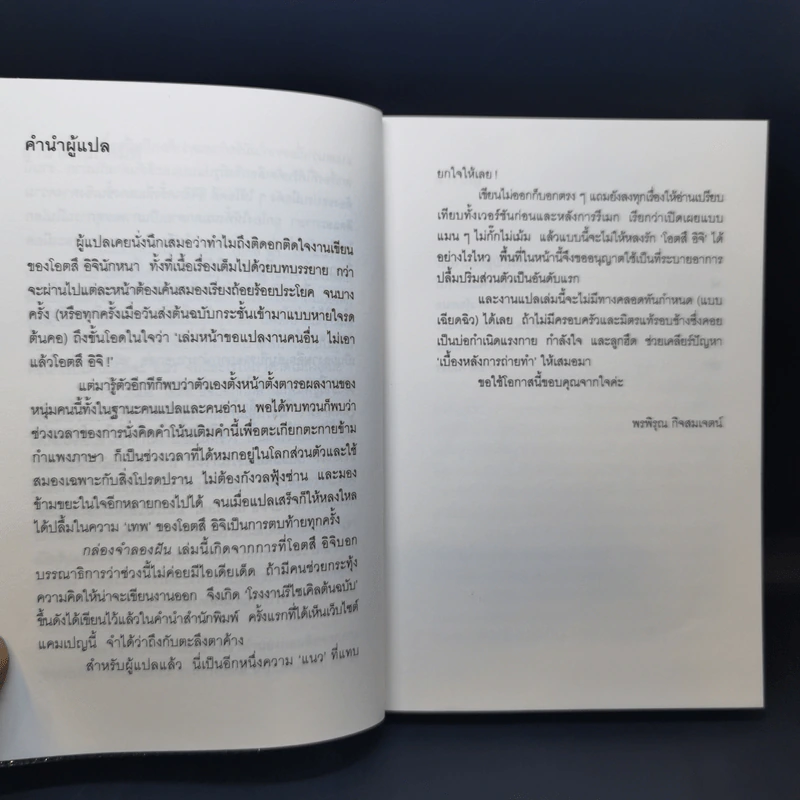 คำนำผู้แปล
ผู้แปลเคยนั่งนึกเสมอว่าทำไมถึงติดอกติดใจงานเขียน
ของโอตสึ อิจินักหนา ทั้งที่เนื้อเรื่องเต็มไปด้วยบทบรรยาย กว่า
จะผ่านไปแต่ละหน้าต้องเค้นสมองเรียงถ้อยร้อยประโยค จนบาง
ครั้ง (หรือทุกครั้งเมื่อวันส่งต้นฉบับกระชั้นเข้ามาแบบหายใจรด
ต้นคอ) ถึงขั้นโอดในใจว่า ‘เล่มหน้าขอแปลงานคนอื่น ไม่เอา
แล้วโอตสึ อิจิ !’
แต่มารู้ตัวอีกทีก็พบว่าตัวเองตั้งหน้าตั้งตารอผลงานของ
หนุ่มคนนี้ทั้งในฐานะคนแปลและคนอ่าน พอได้ทบทวนก็พบว่า
ช่วงเวลาของการนั่งคิดคำโน้นเติมคำนี้เพื่อตะเกียกตะกายข้าม
กำแพงภาษา ก็เป็นช่วงเวลาที่ได้หมกอยู่ในโลกส่วนตัวและใช้
สมองเฉพาะกับสิ่งโปรดปราน ไม่ต้องกังวลฟุ้งซ่าน และมอง
ข้ามขยะในใจอีกหลายกองไปได้ จนเมื่อแปลเสร็จก็ให้หลงใหล
ได้ปลื้มในความ ‘เทพ’ ของโอตสึ อิจิเป็นการตบท้ายทุกครั้ง
กล่องจำลองฝัน เล่มนี้เกิดจากการที่โอตสึ อิจิบอก
บรรณาธิการว่าช่วงนี้ไม่ค่อยมีไอเดียเด็ด ถ้ามีคนช่วยกระทุ้ง
ความคิดให้น่าจะเขียนงานออก จึงเกิด ‘โรงงานรีไซเคิลต้นฉบับ’
ขึ้นดังได้เขียนไว้แล้วในคำนำสำนักพิมพ์ ครั้งแรกที่ได้เห็นเว็บไซต์
แคมเปญนี้ จำได้ว่าถึงกับตะลึงตาค้าง
สำหรับผู้แปลแล้ว นี่เป็นอีกหนึ่งความ ‘แนว’ ที่แทบ
ยกใจให้เลย !
เขียนไม่ออกก็บอกตรง ๆ แถมยังลงทุกเรื่องให้อ่านเปรียบ
เทียบทั้งเวอร์ชันก่อนและหลังการรีเมก เรียกว่าเปิดเผยแบบ
แมน ๆ ไม่กั๊กไม่เม้ม แล้วแบบนี้จะไม่ให้หลงรัก ‘โอตสึ อิจิ’ ได้
อย่างไรไหว พื้นที่ในหน้านี้จึงขออนุญาตใช้เป็นที่ระบายอาการ
ปลื้มปริ่มส่วนตัวเป็นอันดับแรก
และงานแปลเล่มนี้จะไม่มีทางคลอดทันกำหนด (แบบ
เฉียดฉิว) ได้เลย ถ้าไม่มีครอบครัวและมิตรแท้รอบข้างซึ่งคอย
เป็นบ่อกำเนิดแรงกาย กำลังใจ และลูกฮึด ช่วยเคลียร์ปัญหา
‘เบื้องหลังการถ่ายทำ’ ให้เสมอมา
ขอใช้โอกาสนี้ขอบคุณจากใจค่ะ
พรพิรุณ กิจสมเจตน์